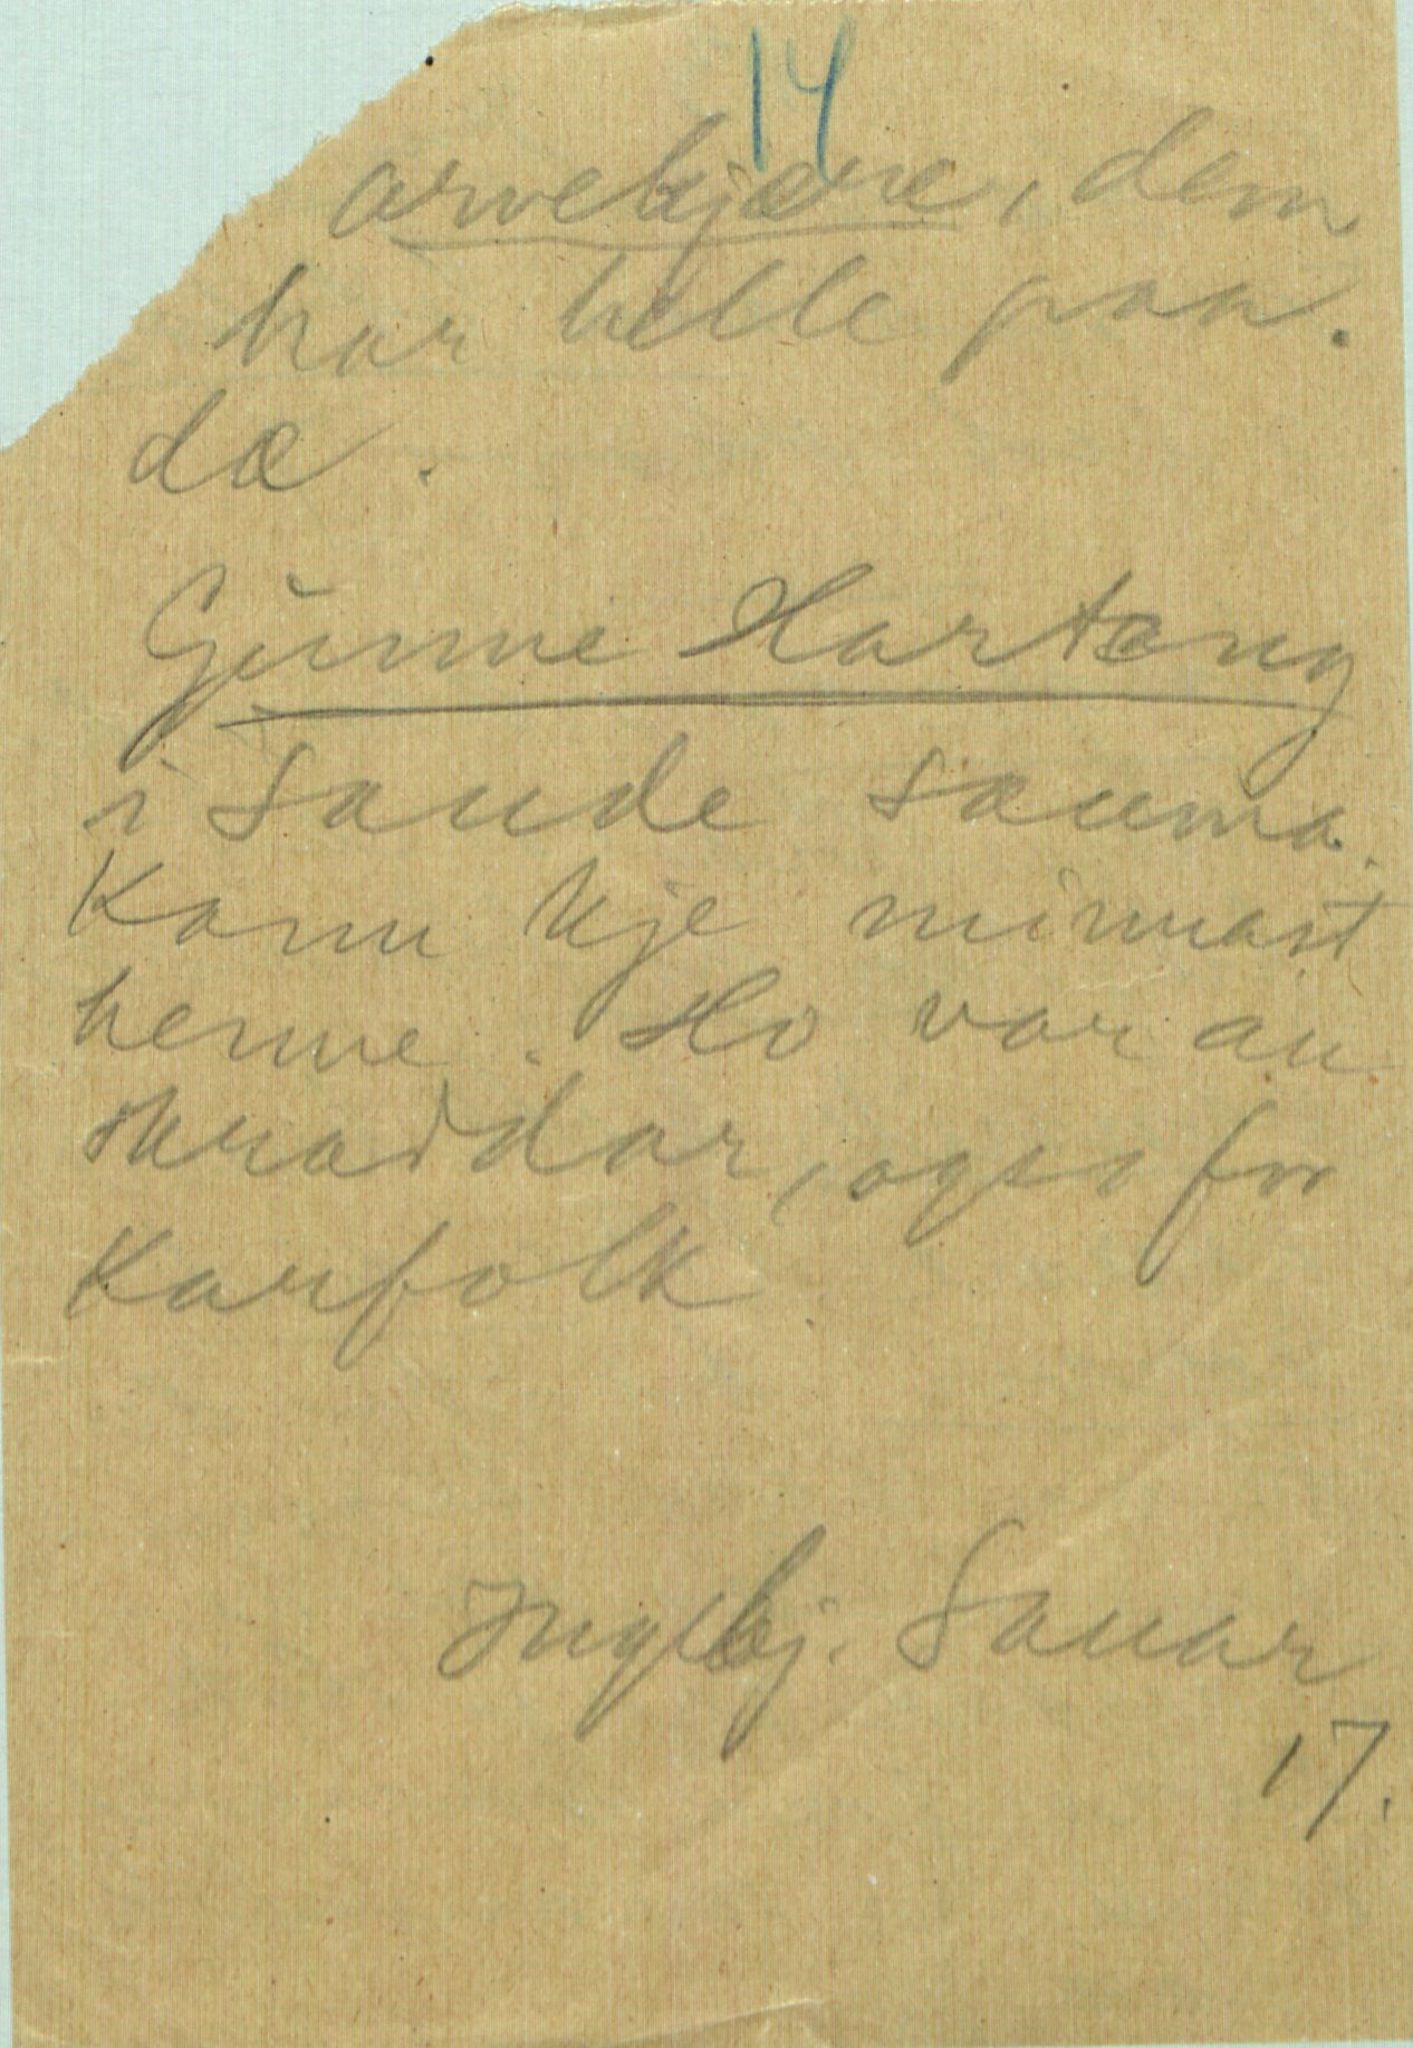 14
arvekjære, dem
har helle paa.
dæ.
Gunne Hartong
i Saude sauma.
Kann kje minnast
henne. Ho var au
skraddar, ogso for
Karfolk.
Ingebj. Sauar
17.